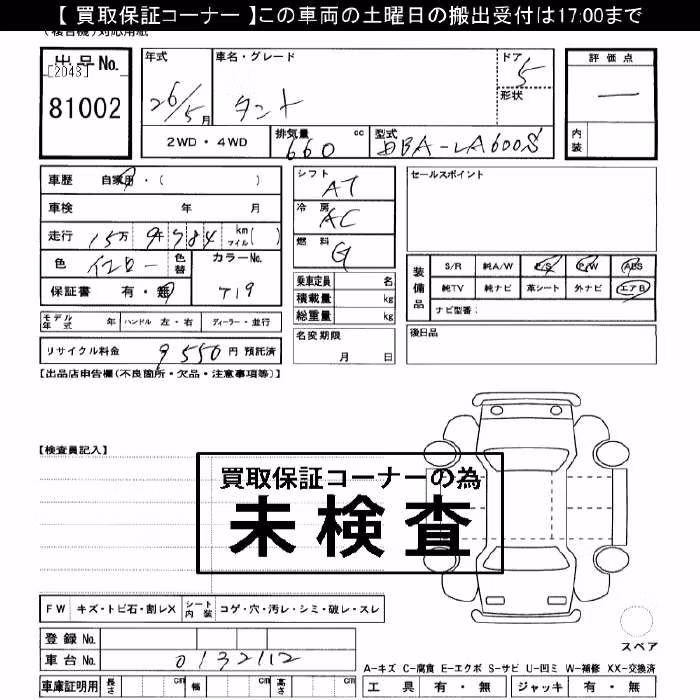 【 買取保証コーナー 】この車両の土曜日の搬出受付は17:00まで
(複合機)対応用紙
出品No.
[2043]
81002
年式
26/5月
車名・グレード
タント
ドア
5
形状
評価点
—
内装
2WD・4WD
排気量 660 cc
型式 DBA-LA600S
車歴 自家用・( )
車検 年 月
走行 15万 9784 km マイル( )
色 イエロー 色替
カラーNo.
T19
保証書 有・無
シフト
AT
冷房
AC
燃料
G
乗車定員 名
積載量 kg
総重量 kg
セールスポイント
装備品
S/R 純A/W P/S P/W ABS
純TV 純ナビ 革シート 外ナビ エアB
ナビ型番:
モデル年式 年 ハンドル 左・右 ディーラー・並行
名変期限
月 日
後日品
リサイクル料金 9550 円 預託済
【出品店申告欄(不良箇所・欠品・注意事項等)】
【検査員記入】
買取保証コーナーの為
未検査
FW キズ・トビ石・割レX シート内装 コゲ・穴・汚レ・シミ・破レ・スレ
スペア
登録No.
車台No. 0132112
A-キズ C-腐食 E-エクボ S-サビ U-凹ミ W-補修 XX-交換済
車庫証明用 長さ cm 幅 cm 高さ cm
工具 有・無 ジャッキ 有・無